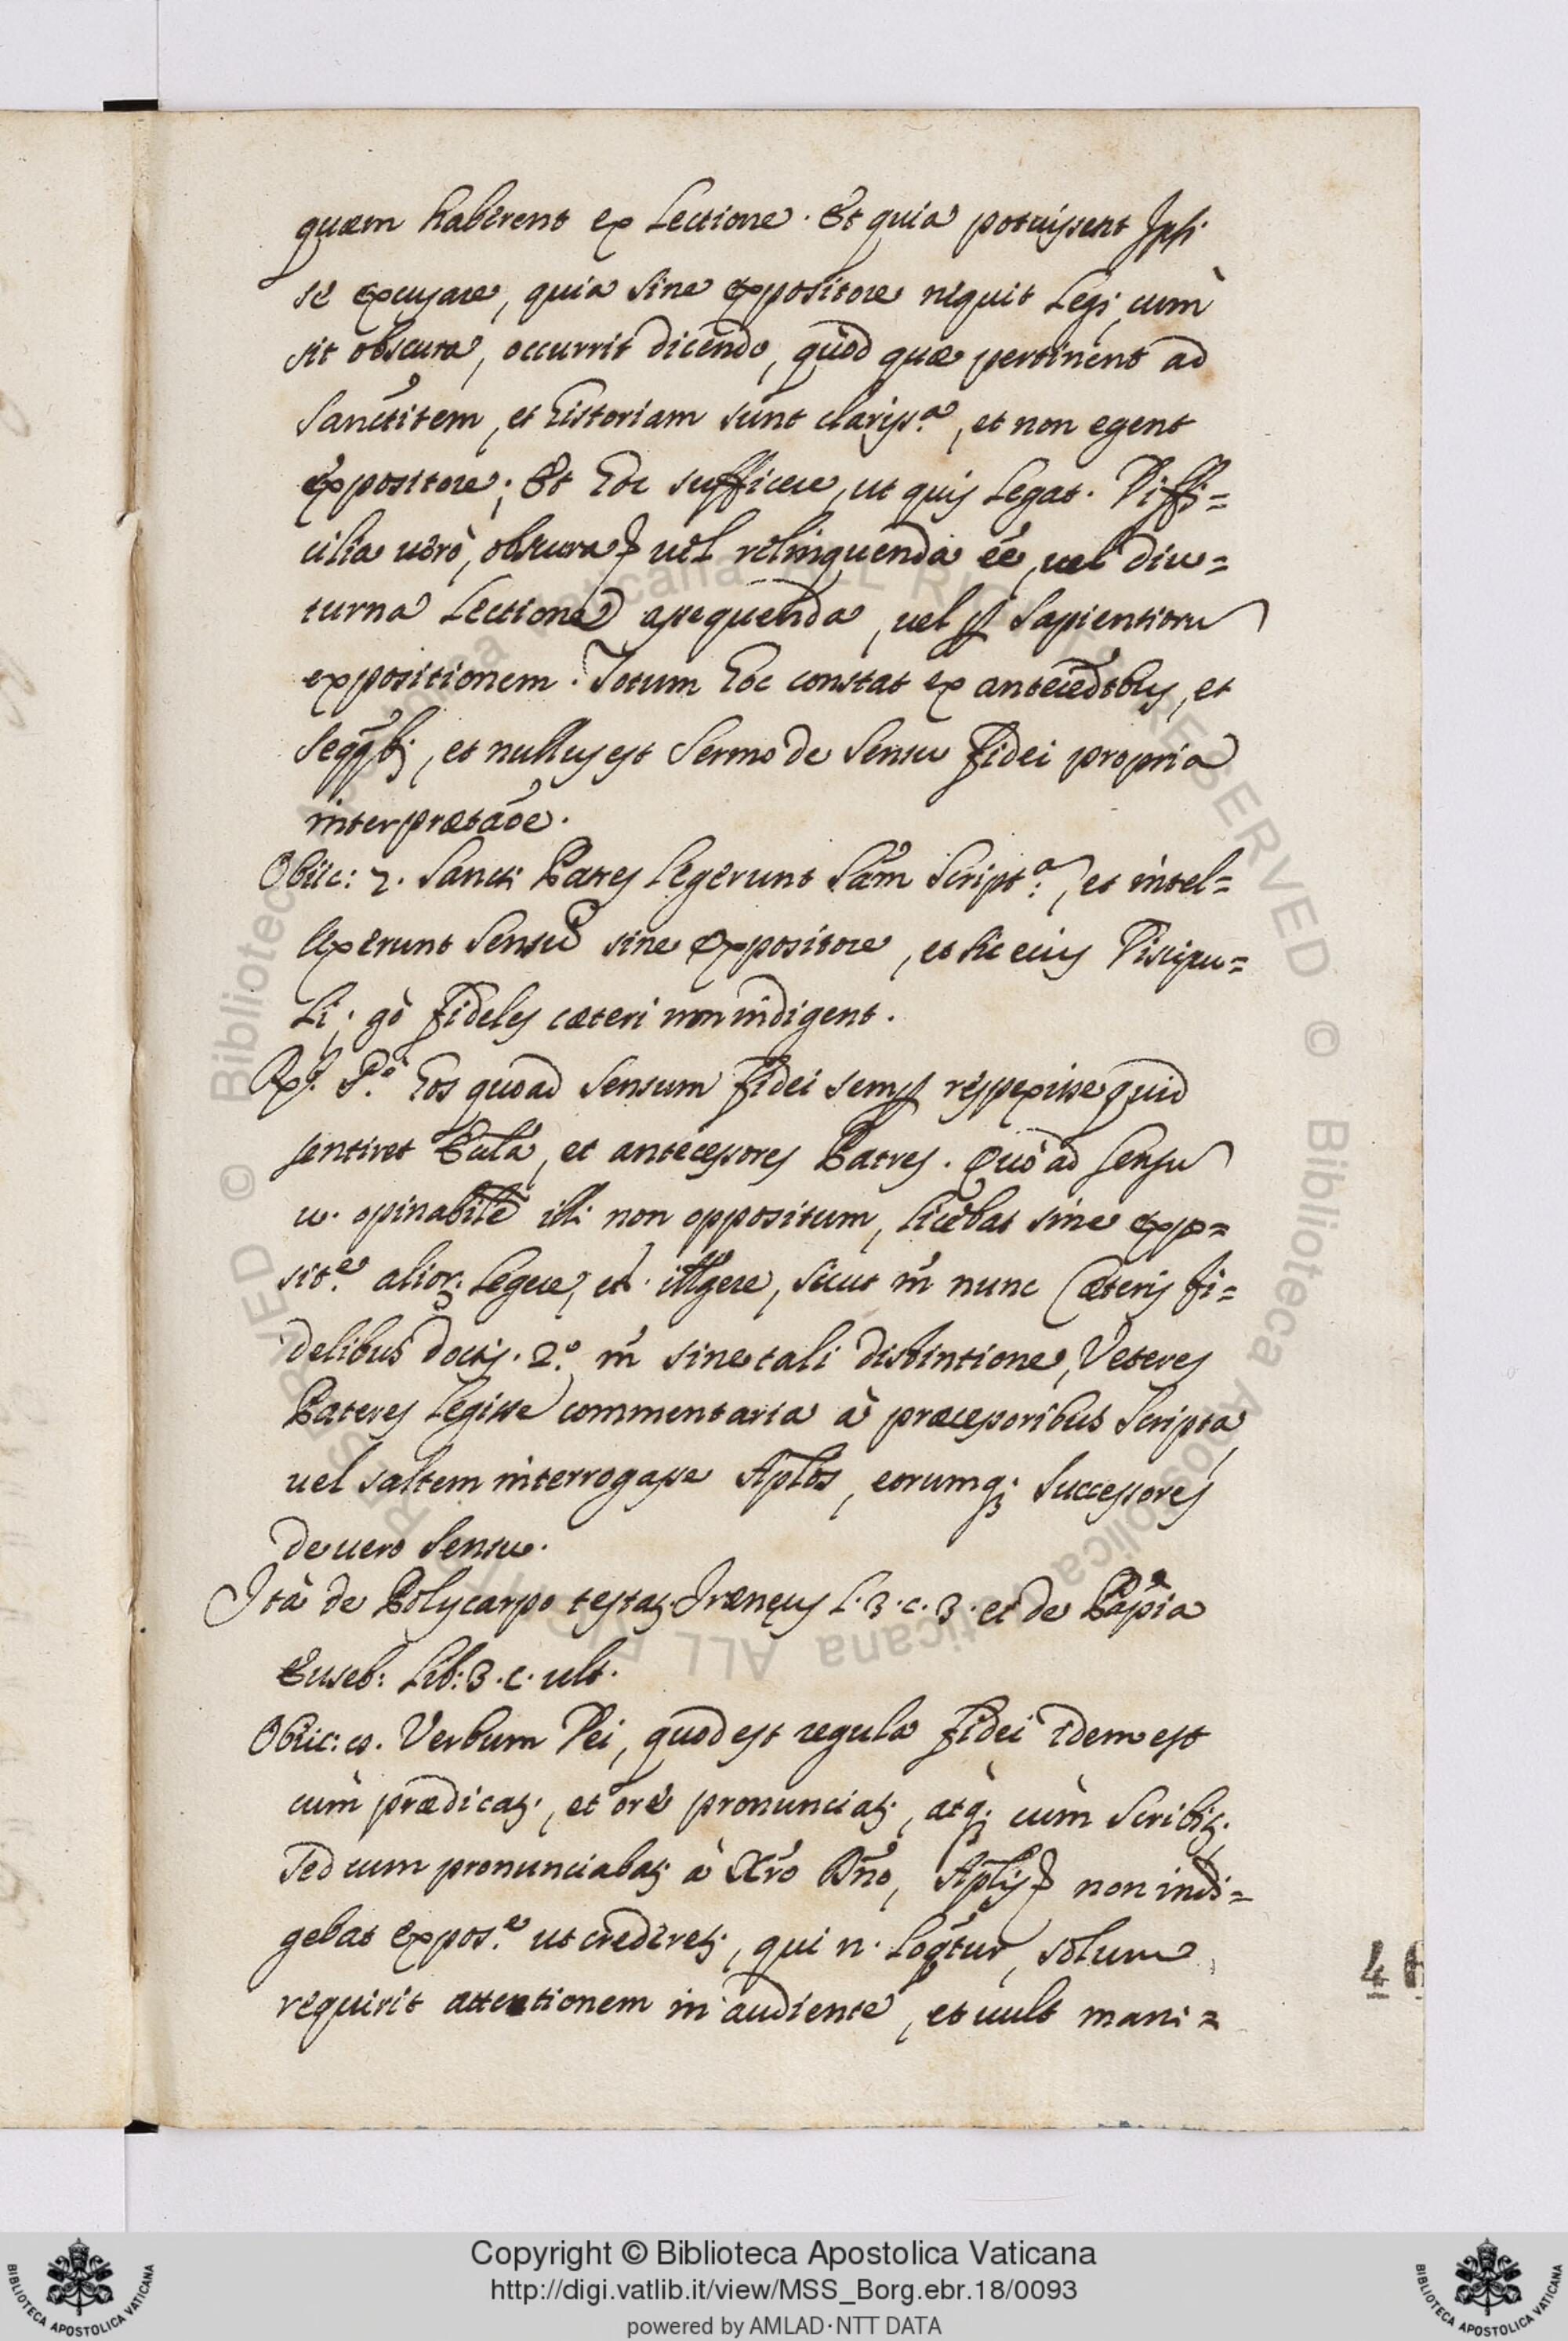 quam habérent ex Lectione. Et quia potuissent Ipsi
sé excusare, quia sine expositore nequit Legi, cùm
sit obscura, occurrit dicendo, quòd quæ pertinent ad
Sanctitem, et historiam sunt clariss.ª, et non egent
expositore; Et hoc sufficere, ut quis Legat. Diffi=
cilia uérò, obscuraq uel relinquenda eé, uel diu=
turna Lectione assequenda, uel ꝑ Sapientioru
expositionem. Totum hoc constat ex antecedtbus, et
, et nullus est Sermo de Sensu Fidei propria
interprætaõe.
Obiic: 2. Sancti Patres Legerunt Sãm Script.ª:, et intel=
lexerunt Sensũ sine expositore, et sic eius Discipu=
Li; gò Fideles cæteri non indigent.
Rx. P.º hos quoad Sensum Fidei semꝑ respexisse quid
sentiret Ecclã, et antecessores Patres. Quò ad Sensu
u. opinabilẽ illi non oppositum, licébat sine expo=
sit.e alior. Legere, et illgere, sicut m̃ nunc Cæteris fi=
delibus doctis. 2.º m̃ sine tali distintione, Veteres
Pateres Legisse commentaria à præcessoribus Scripta
uel saltem interrogasse Aplõs, eorumq; Successores
de uero Sensu.
Ità de Polycarpo testat; Irænęus L. 3. c. 3. et de Papia
Euseb: Lib: 3. c. ult.
Obiic: . Verbum Dei, quod est regula Fidei idem est
cùm prædicat;, et orè pronunciat;, àtq; cùm Scribit;.
Sed cum pronunciabat; à Xrõ Dño, Aplisq non indi=
gebat expos.e ut crederet;, qui n. Loqtur, solum
requirit attentionem in audiente, et uult mani=
46
Copyright © Biblioteca Apostolica Vaticana
http://digi.vatlib.it/view/MSS_Borg.ebr.18/0093
powered by AMLAD·NTT DATA
BIBLIOTECA APOSTOLICA VATICANA
BIBLIOTECA APOSTOLICA VATICANA
© Biblioteca Apostolica Vaticana ALL RIGHTS RESERVED © Biblioteca Apostolica Vaticana ALL RIGHTS RESERVED